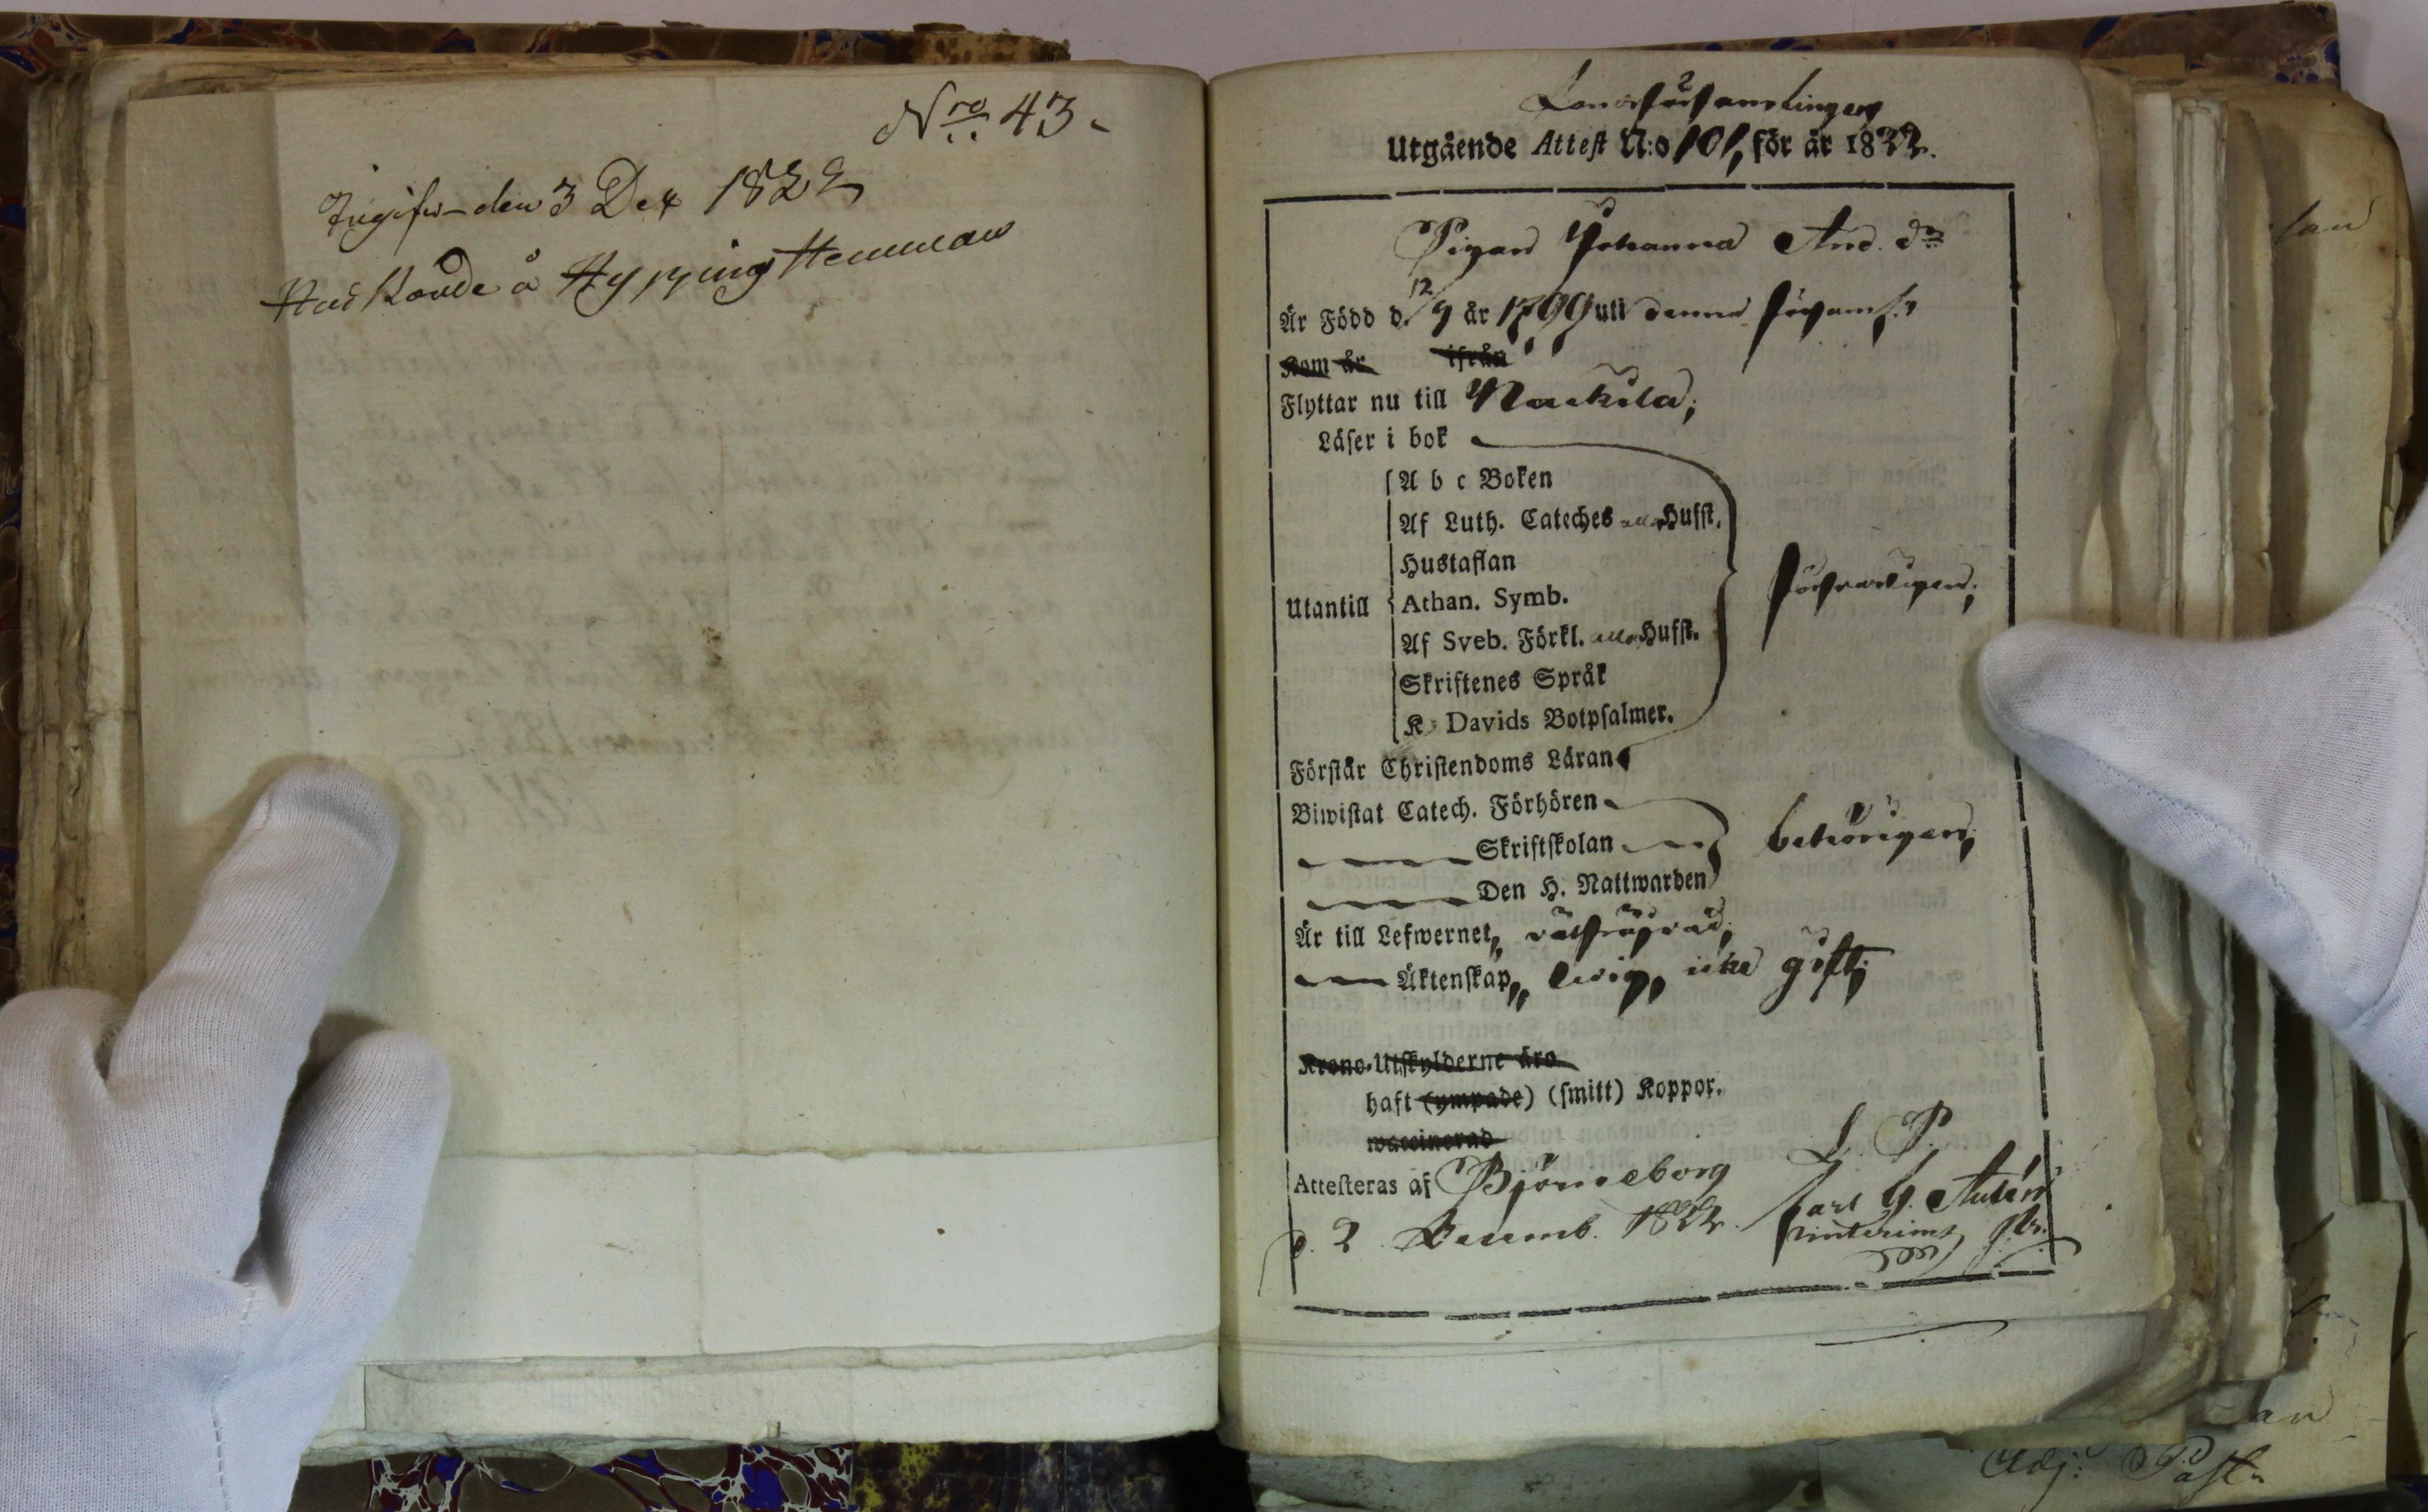 Nro 43.
Ingifw. den 3 Dec 1822
å Hyppingi Hemman
Landsförsamlingen
Utgående Attest N:o 101, för år 1822.
Pigan Johanna And. dr
Är Född d. 12/9 år 1799 uti denna förs:
Kom år ifrån
Flyttar nu till Nackila;
Läser i bok
A b c Boken
Af Luth. Cateches alla Hufst.
Hustaflan
Utantill Athan. Symb. försvarligen;
Af Sveb. Förkl. alla Hufst.
Skriftenes Språk
K. Davids Botpsalmer.
Förstår Christendoms Läran
Biwistat Catech. Förhören
Skriftskolan behörigen;
Den H. Nattwarden
Är till Lefwernet,
Äktenskap, ledig, icke gift;
Krono-Utskylderne äro
haft (ympade) (smitt) Koppor.
waccinerad
L. P.
Attesteras af Björneborg
d. 2 Decemb. 1822. Carl G.
Adj: Past.